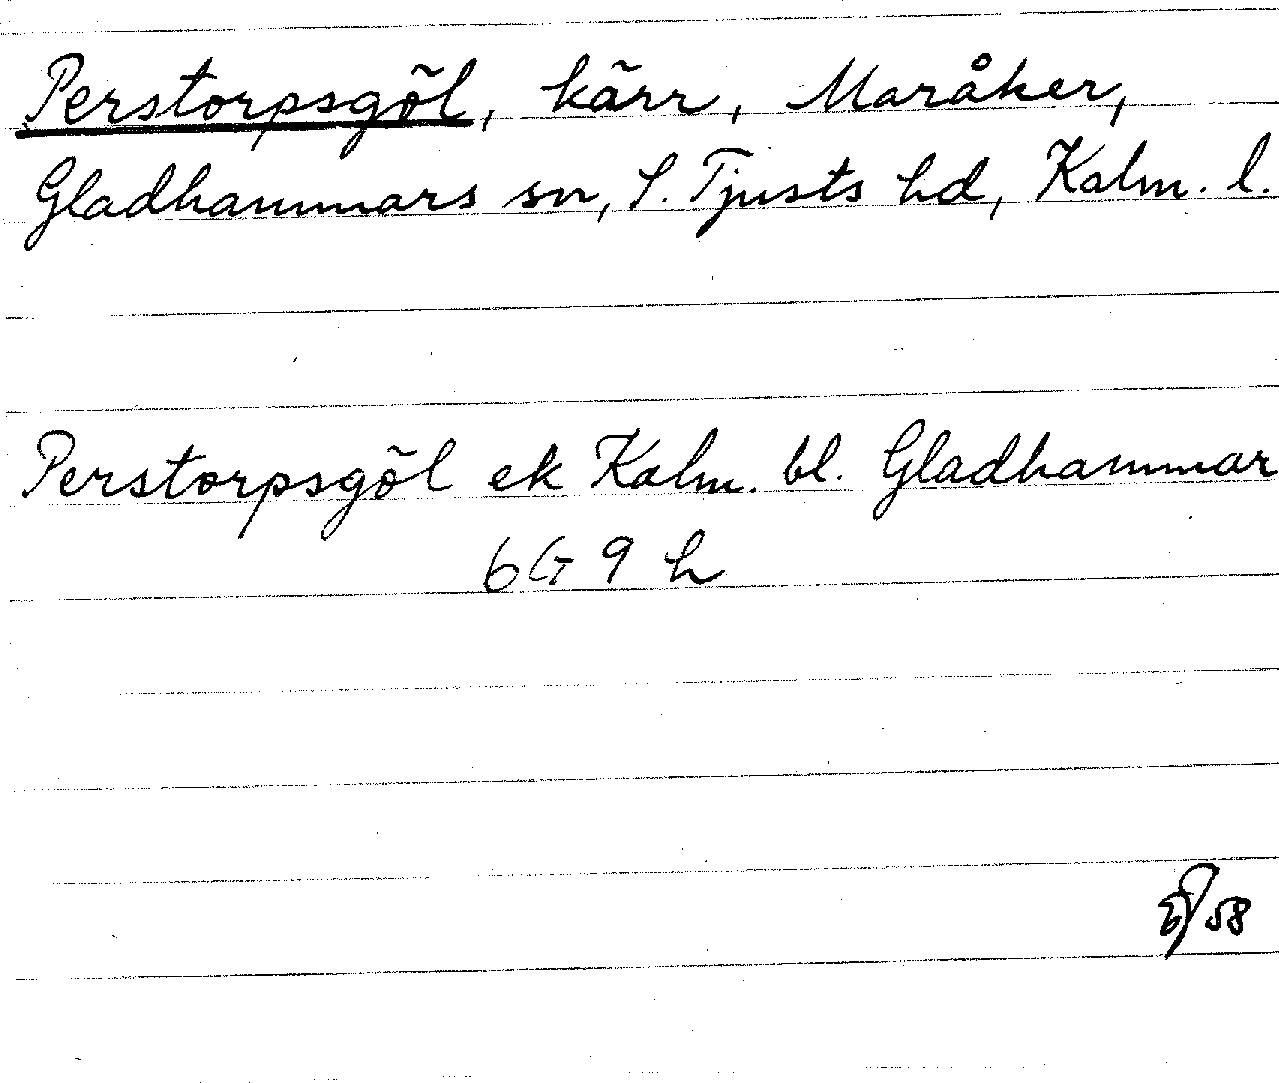 Perstorpsgöl, kärr, Maråker,
Gladhammars sn, S. Tjusts hd, Kalm. l.
Perstorpsgöl ek Kalm. bl. Gladhammar
6G 9 h
58